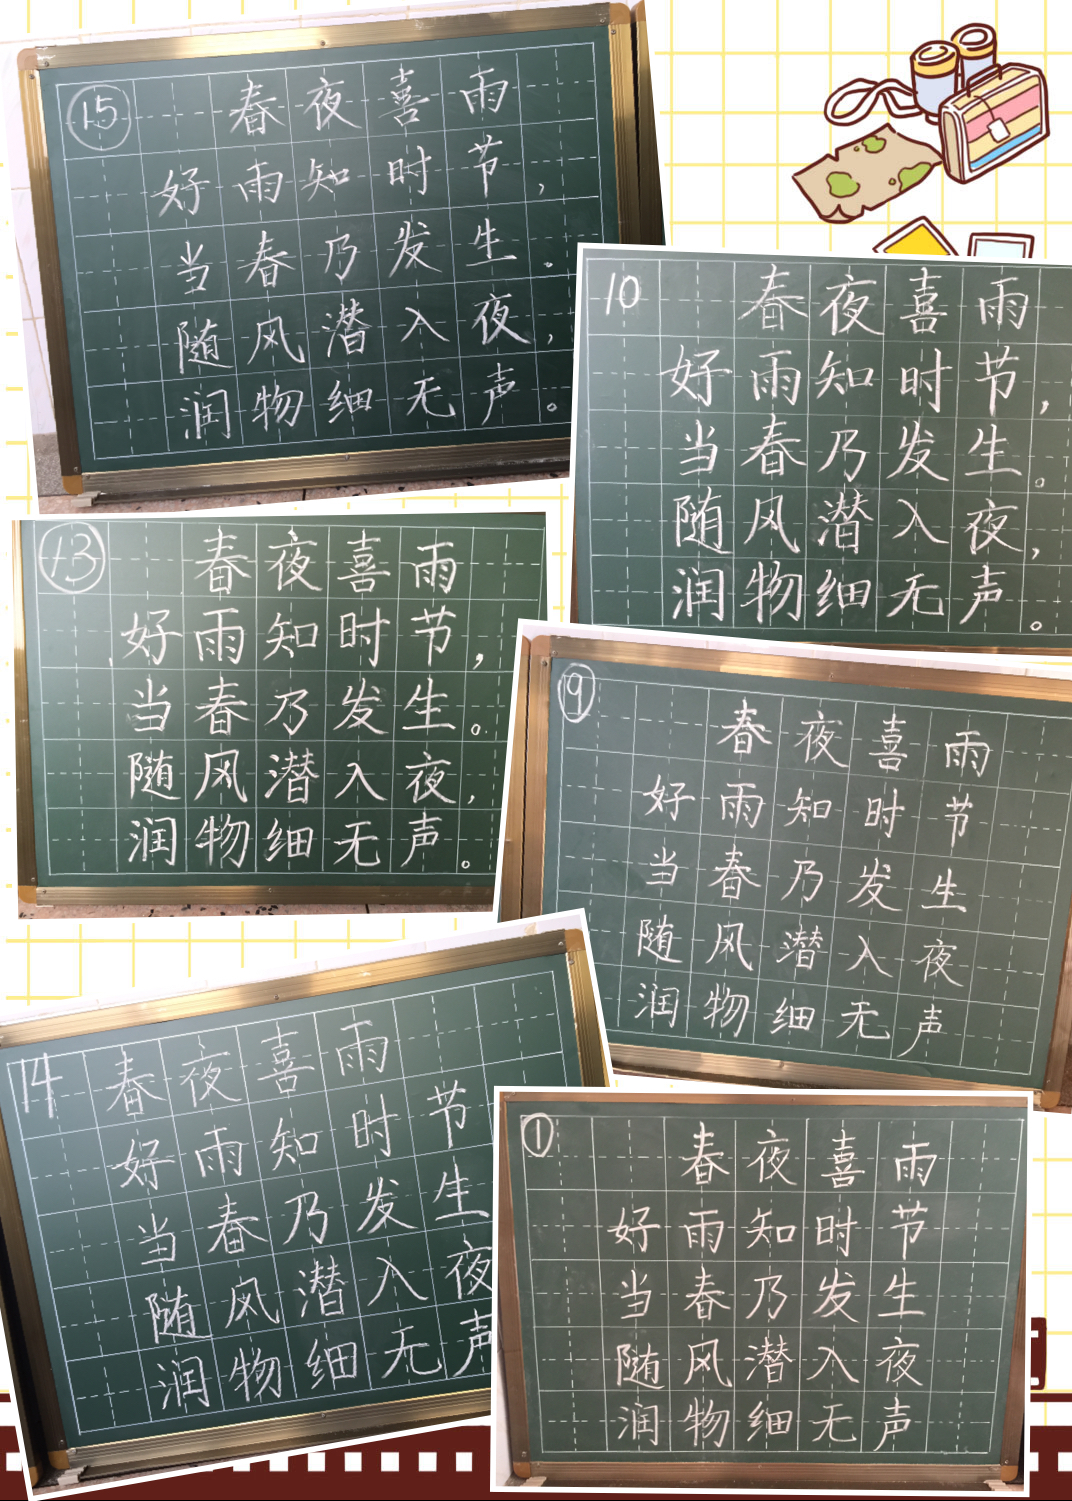 15 春夜喜雨
好雨知时节，
当春乃发生。
随风潜入夜，
润物细无声。
10 春夜喜雨
好雨知时节，
当春乃发生。
随风潜入夜，
润物细无声。
13 春夜喜雨
好雨知时节，
当春乃发生。
随风潜入夜，
润物细无声。
9 春夜喜雨
好雨知时节
当春乃发生
随风潜入夜
润物细无声
14 春夜喜雨
好雨知时节
当春乃发生
随风潜入夜
润物细无声
1 春夜喜雨
好雨知时节
当春乃发生
随风潜入夜
润物细无声